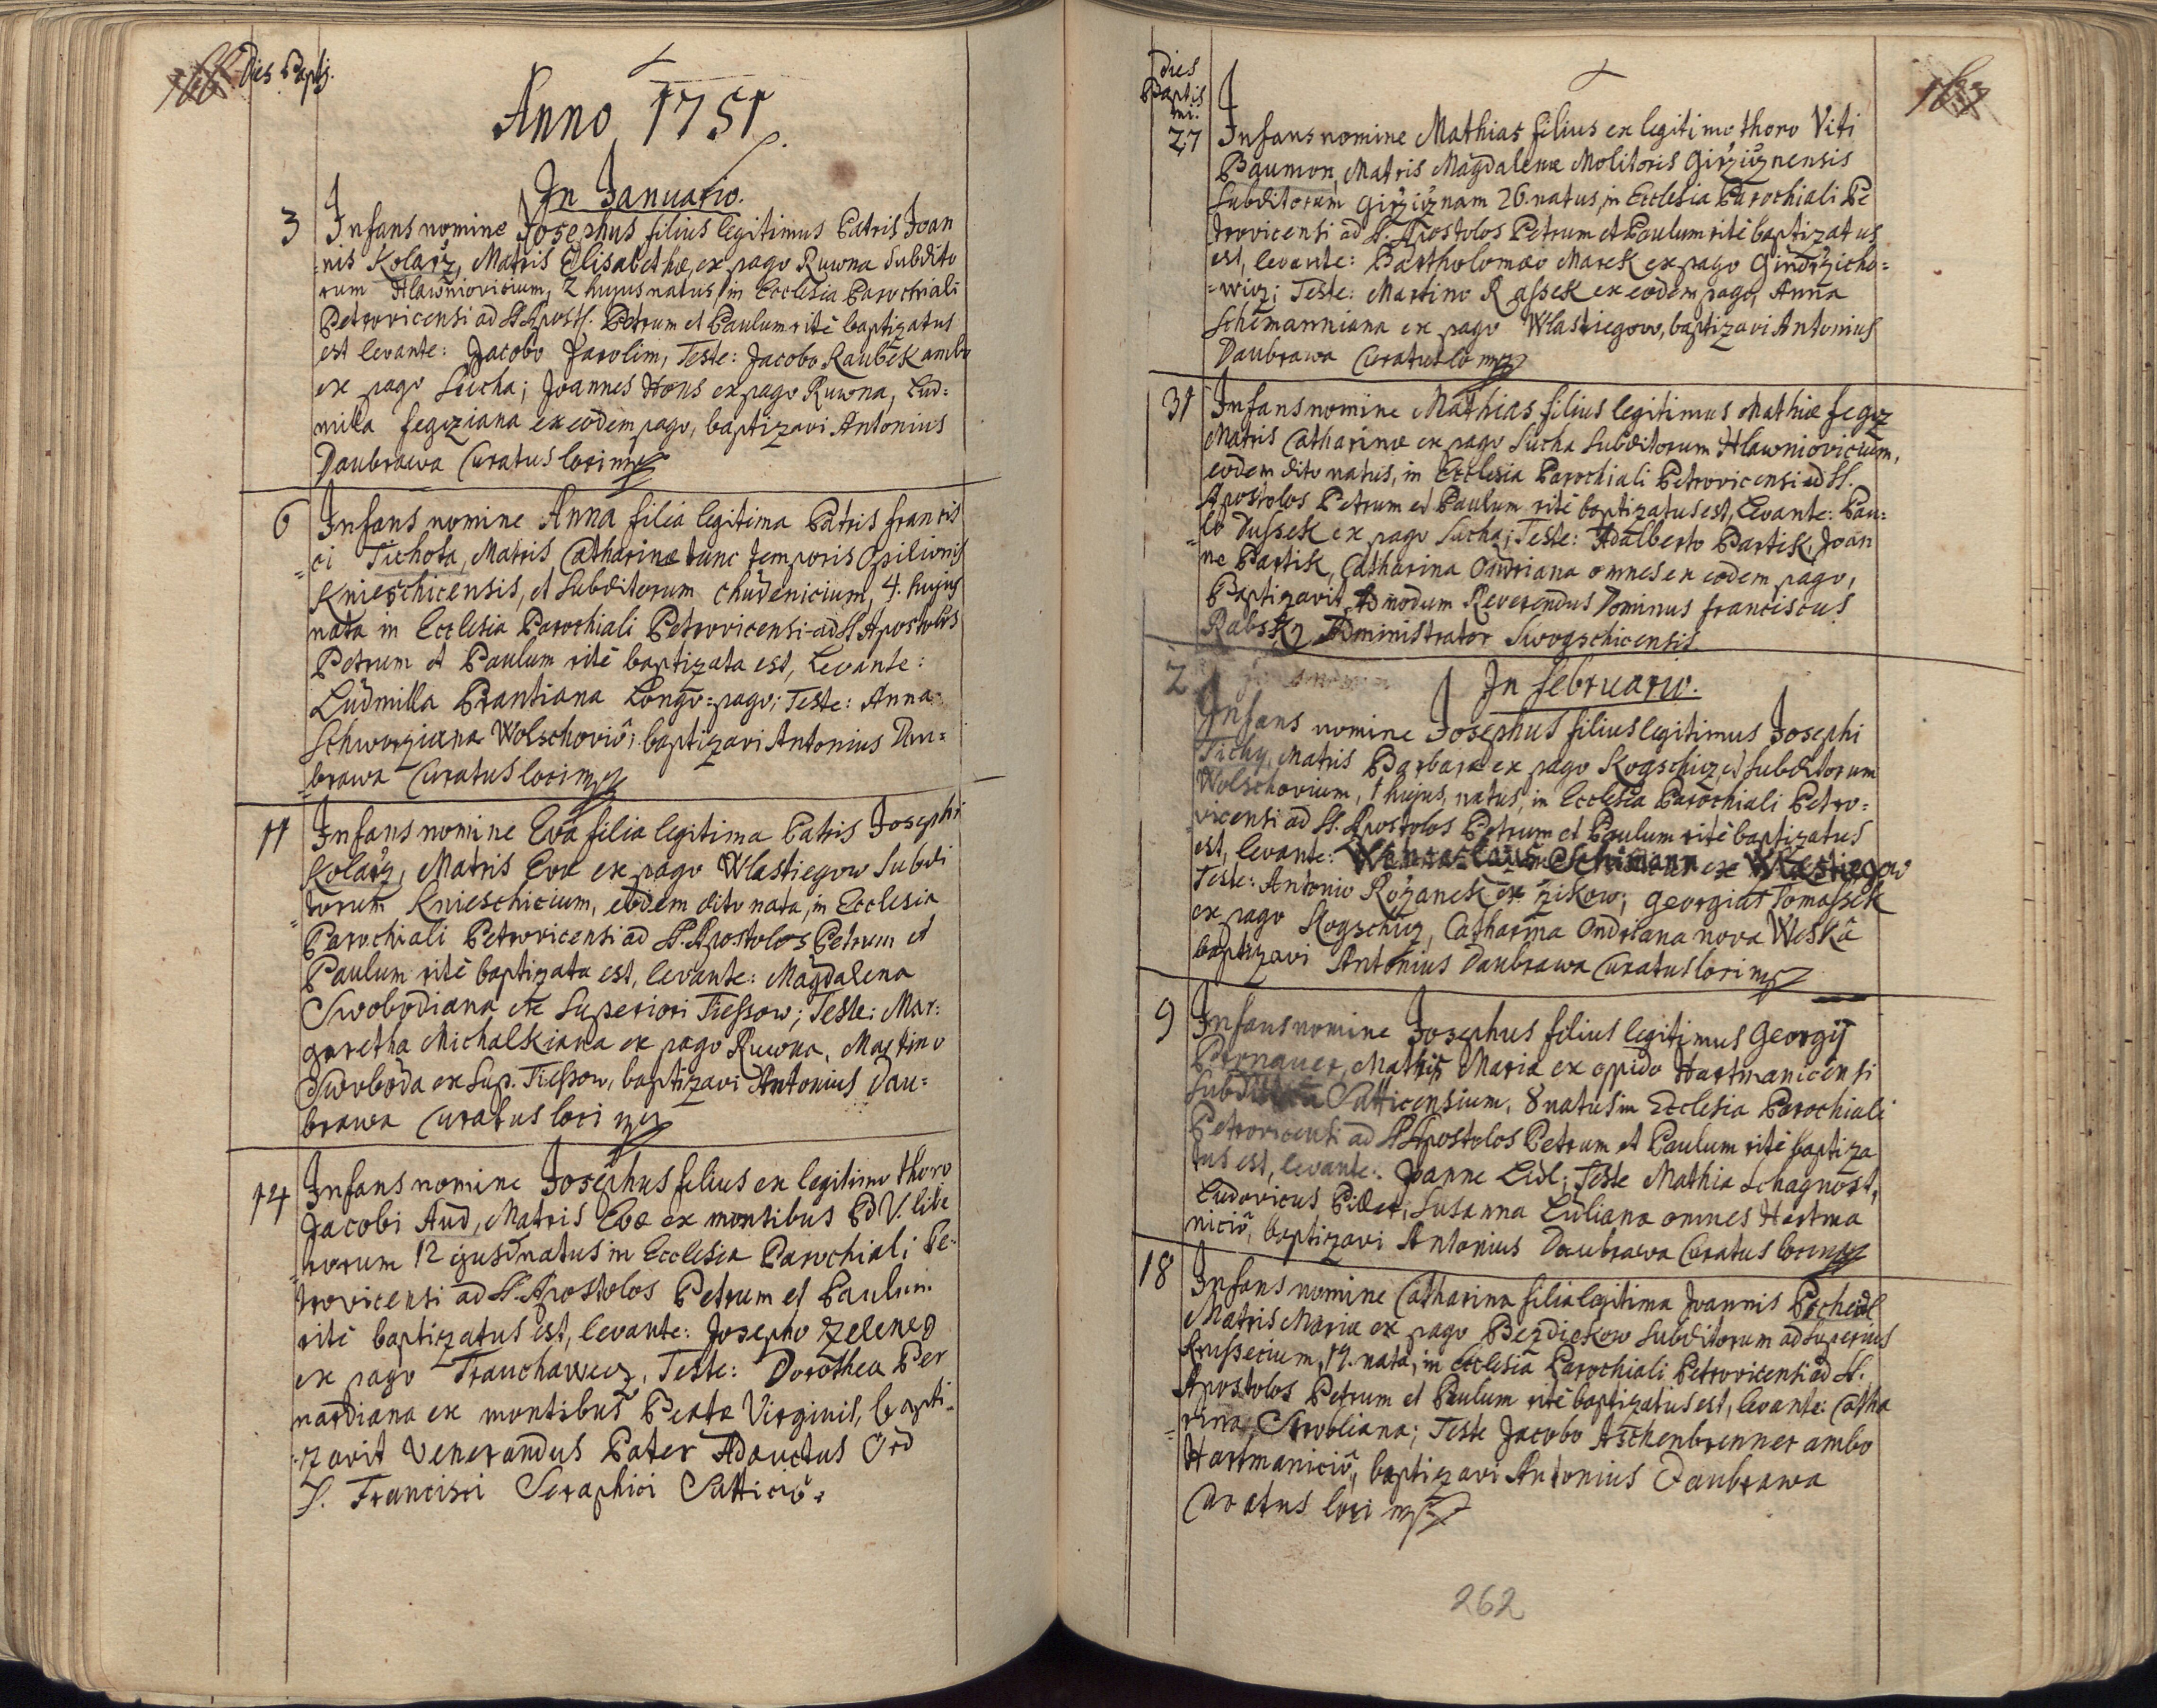 166 Dies Bapts.
Anno 1751.
In Januario.
3 Infans nomine Josephus filius legitimus Patris Joan
=nis Kolarz, Matris Elisabethæ, ex pago Ruwna Subdito
rum Hlawniovicium, 2 hujus natus, in Ecclesia Parochiali
Petrovicensi ad SS. Apost. Petrum et Paulum ritè baptizatus
est levante: Jacobo Jarolim, Teste: Jacobo Raubek ambo
ex pago Sucha; Joannes Hons ex pago Ruwna, Lud=
milla Fegziana ex eodem pago, baptizavi Antonius
Daubrawa Curatus loci mp
6 Infans nomine Anna filia legitima Patris Francis
=ci Tichota, Matris Catharinæ tunc temporis Opilionis
Knieschicensis, et Subditorum Chudenicium, 4. hujus
nata in Ecclesia Parochiali Petrovicensi ad SS. Apostolos
Petrum et Paulum ritè baptizata est, Levante:
Ludmilla Brantiana Longo=pago; Teste: Anna
Schworziana Wolschoviô; baptizavi Antonius Dau=
=brawa Curatus loci mp
11 Infans nomine Eva filia legitima Patris Josephi
Kolarz, Matris Evæ ex pago Wlastiegow Subdi
=torum Knieschicium, eodem dito nata, in Ecclesia
Parochiali Petrovicensi ad SS. Apostolos Petrum et
Paulum ritè baptizata est, levante: Magdalena
Swobodiana ex Superiori Tiessow; Teste: Mar=
garetha Michalkiana ex pago Ruwna, Martino
Swoboda ex Sup. Tiessow, baptizavi Antonius Dau=
brawa Curatus loci mp
14 Infans nomine Josephus filius ex legitimo thoro
Jacobi Aud, Matris Evæ ex montibus B V. libe
=rorum 12 ejusd natus in Ecclesia Parochiali Pe=
trovicensi ad SS. Apostolos Petrum et Paulum
ritè baptizatus est, levante: Josepho Zeleneg
ex pago Trauchawecz, Teste: Dorothea Ber
nardiana ex montibus Beatæ Virginis, bapti=
zavit Venerandus Pater Adauctus Ord
S. Francisci Seraphici Satticiô=
dies
Baptis
mi. 167
27 Infans nomine Mathias filius ex legitimo thoro Viti
Baumon, Matris Magdalenæ Molitoris Girziznensis
Subditorum Girziznam 26. natus, in Ecclesia Parochiali Pe
trovicensi ad SS. Apostolos Petrum et Paulum ritè baptizatus
est, levante: Bartholomæo Marek ex pago Gindrzicho=
=wicz; Teste: Martino Rassek ex eodem pago, Anna
Schimanniana ex pago Wlastiegow, baptizavi Antonius
Daubrawa Curatus loci mp
31 Infans nomine Mathias filius legitimus Mathiæ Fegcz
Matris Catharinæ ex pago Sucha Subditorum Hlawniovicium,
eodem dito natus, in Ecclesia Parochiali Petrovicensi ad SS.
Apostolos Petrum et Paulum ritè baptizatus est, Levante: Pau=
=lo Dussek ex pago Sucha; Teste: Adalberto Bartik, Joan
ne Bartik, Catharina Ondriana omnes ex eodem pago,
Baptizavit Admodum Reverendus Dominus Franciscus
Rabsky Administrator Swogschicensis
2 In Februario.
Infans nomine Josephus filius legitimus Josephi
Tichy, Matris Barbaræ ex pago Kogschicz, et Subditorum
Wolschovium, 1 hujus, natus, in Ecclesia Parochiali Petro=
vicensi ad SS. Apostolos Petrum et Paulum ritè baptizatus
est, levante: Wenceslaus Schimann ex Wlastiegow
Teste: Antonio Rozanek ex Zikow; Georgius Tomassek
ex pago Kogschicz, Catharina Ondriana nova Weska
baptizavi Antonius Daubrawa Curatus loci mp
9 Infans nomine Josephus filius legitimus Georgij
Pernauer, Matris Mariæ ex oppido Hartmanicensi
Satticensium, 8 natus in Ecclesia Parochiali
Petrovicensi ad SS. Apostolos Petrum et Paulum ritè baptiza
tus est, levante: Joanne Lidl; Teste Mathia Schagnost,
Ludovicus Piller, Susanna Luliana omnes Hartma
niciô, baptizavi Antonius Daubrawa Curatus loci mp
18 Infans nomine Catharina filia legitima Joannis Pscheidl
Matris Mariæ ex pago Bezdiekow Subditorum ad Superius
Krussecium, 17. nata, in Ecclesia Parochiali Petrovicensi ad SS.
Apostolos Petrum et Paulum ritè baptizatus est, levante: Catha
=rina Strobliana; Teste Jacobo Aschenbrenner ambo
Hartmaniciô, baptizavi Antonius Daubrawa
Curatus loci mp
262